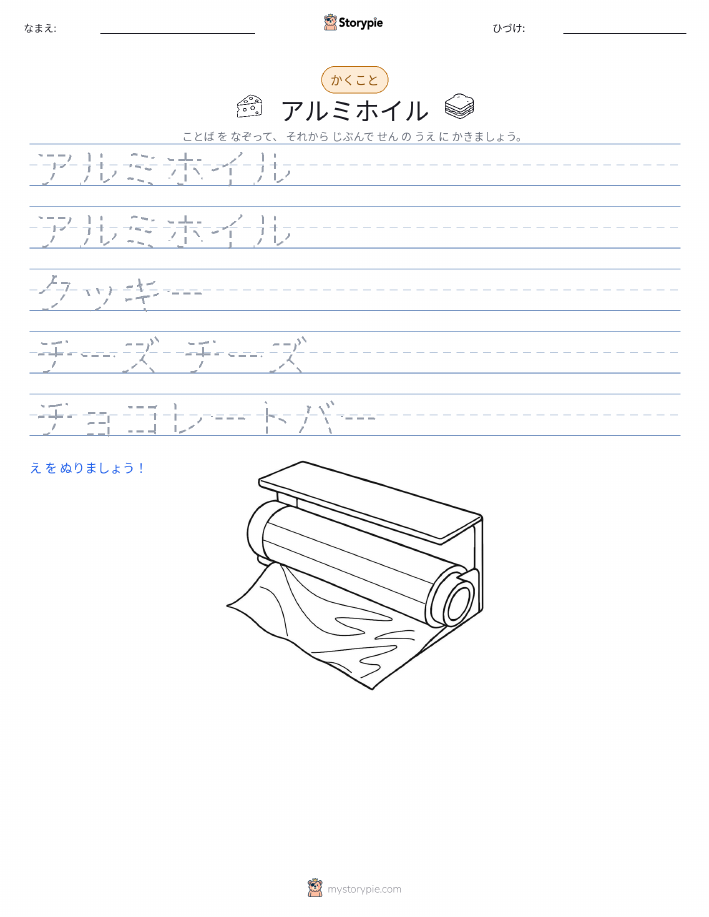 なまえ:
Storypie
ひづけ:
かくこと
アルミホイル
ことば を なぞって、 それから じぶんで せん の うえ に かきましょう。
アルミホイル
アルミホイル
クッキー
チーズ チーズ
チョコレートバー
え を ぬりましょう！
mystorypie.com